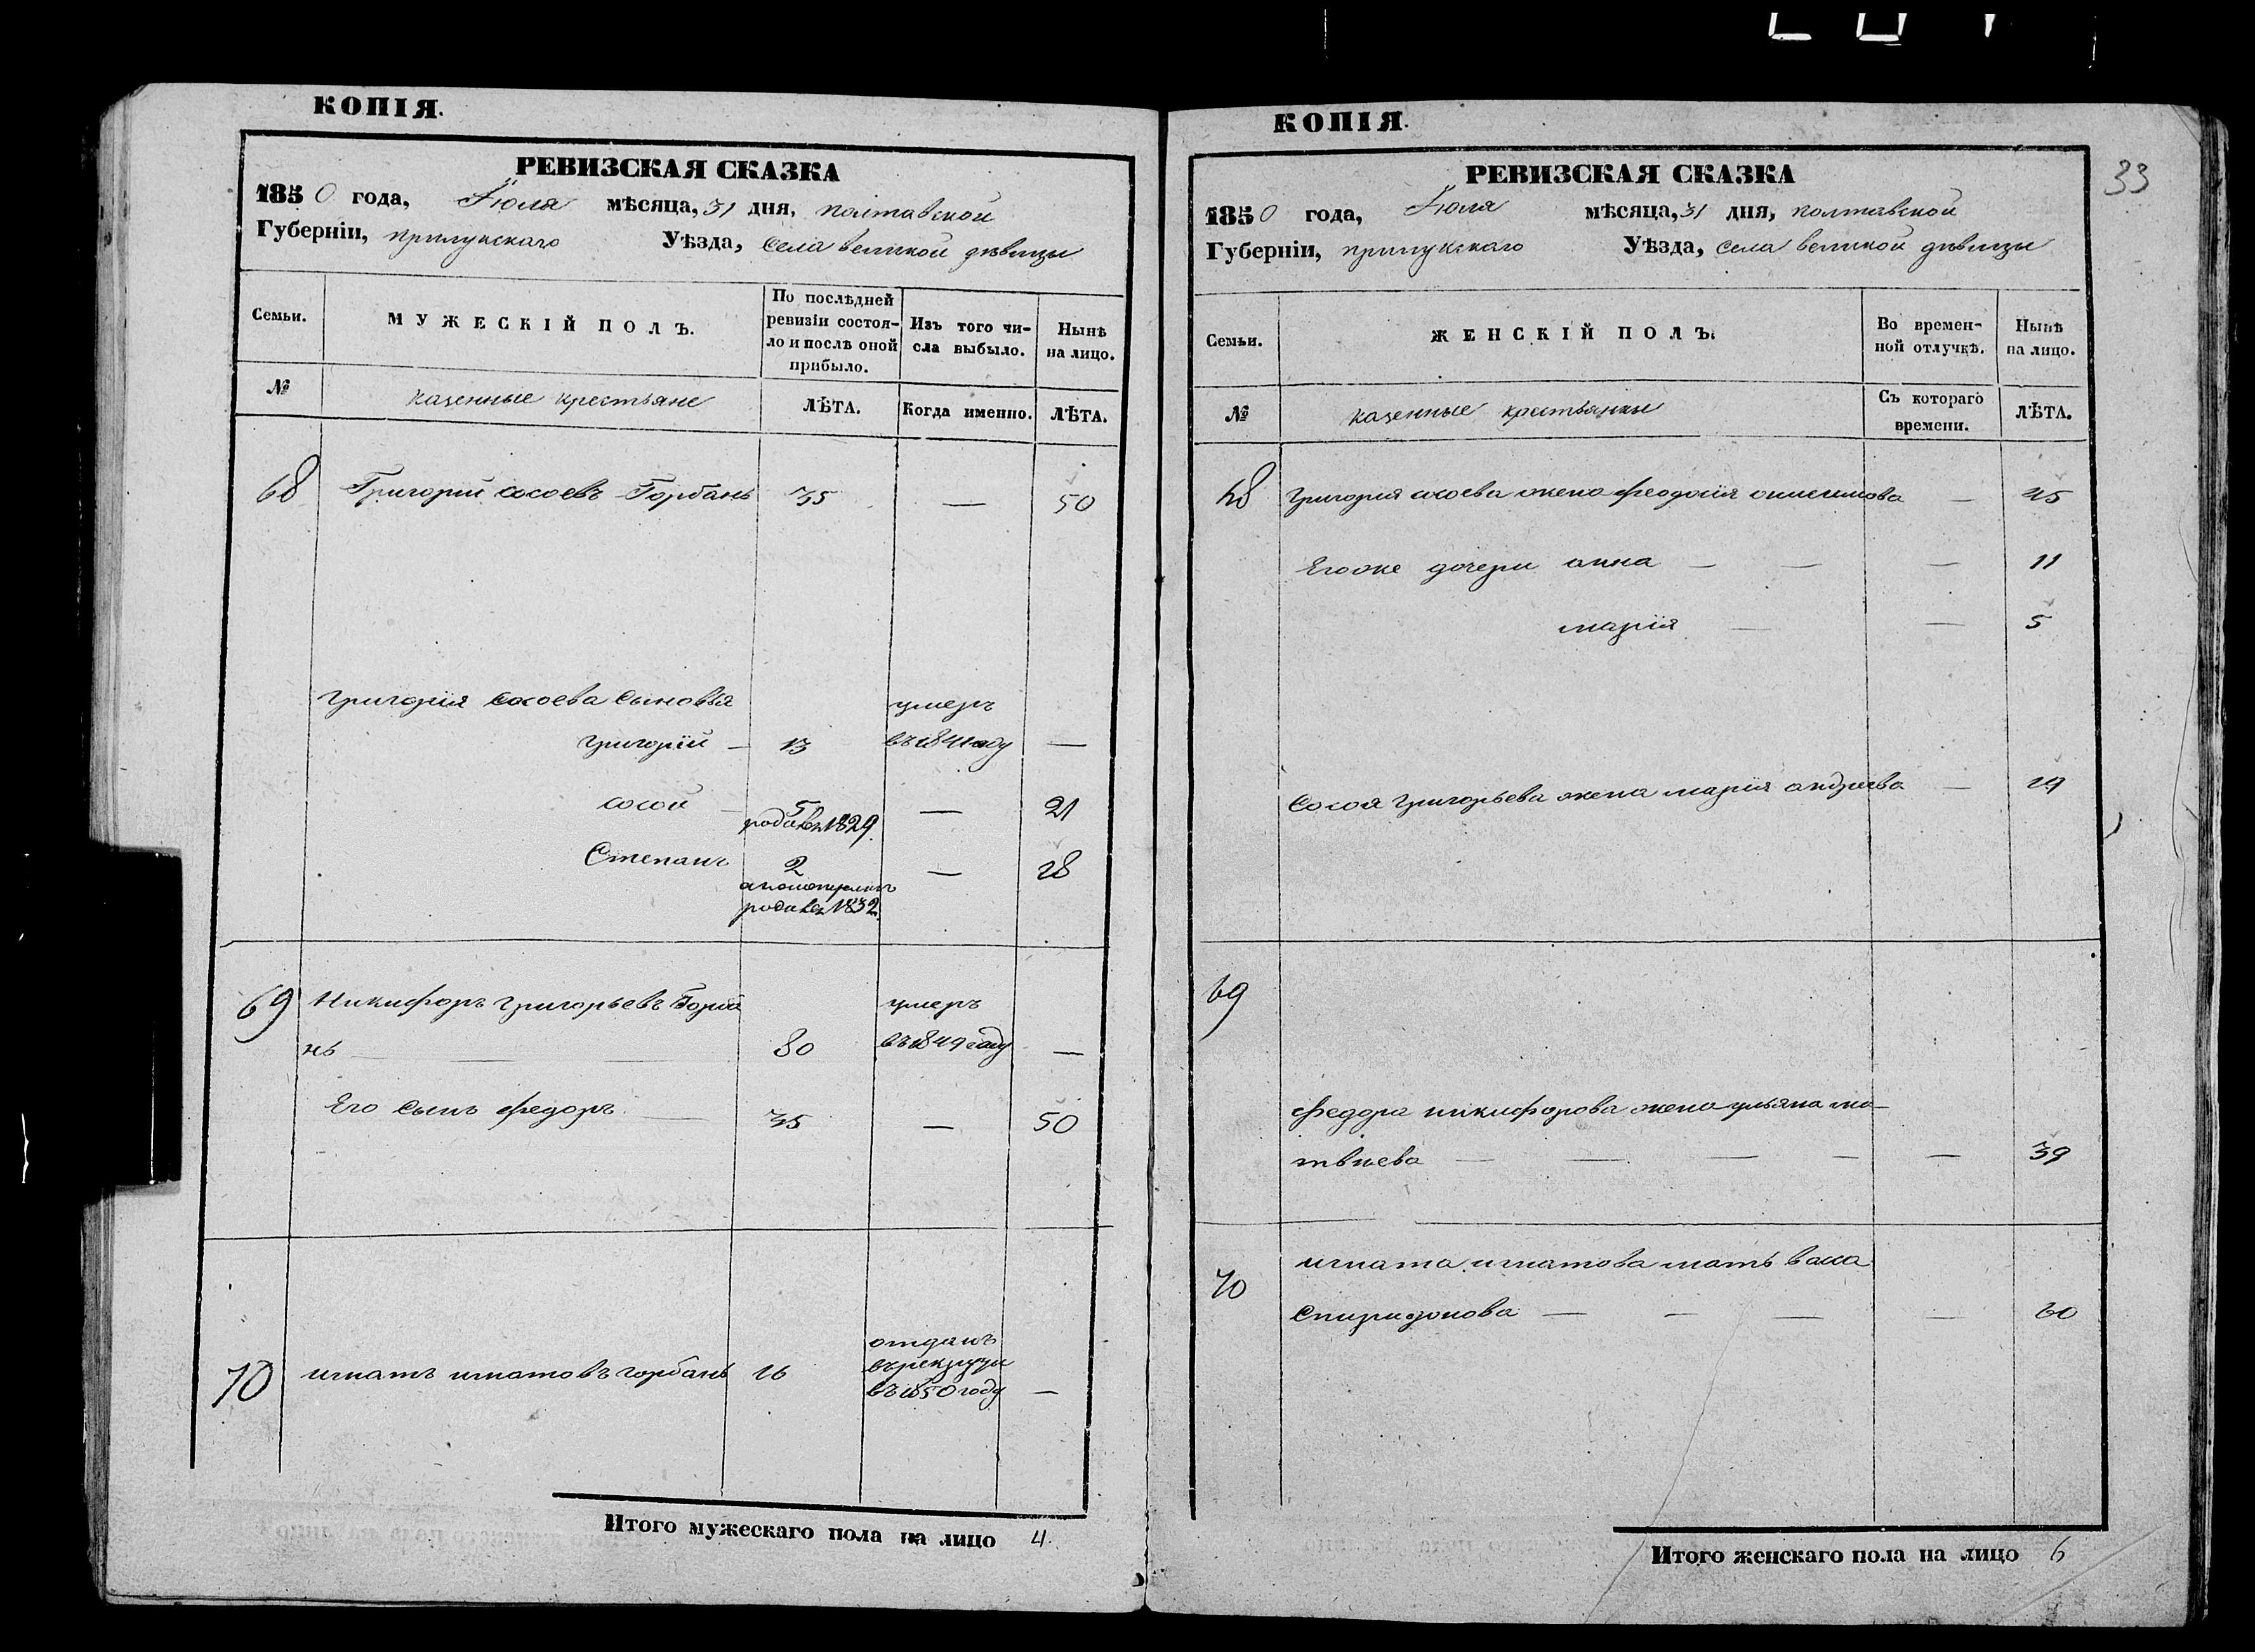 КОПІЯ.
РЕВИЗСКАЯ СКАЗКА
1850 года, Іюля мѣсяца, 31 дня, полтавской
Губерніи, прилукскаго Уѣзда, села великой дѣвицы
Семьи.
МУЖЕСКІЙ ПОЛЪ.
По послѣдней
ревизіи состоя-
ло и послѣ оной
прибыло.
Изъ того чи-
сла выбыло.
Нынѣ
на лицо.
№
казенные крестьяне
ЛѢТА.
Когда именно.
ЛѢТА.
68 Григорій сосоевъ Горбань 35 — 50
григорія сосоева сыновья умеръ
григорій — 13 въ 1841 году —
сосой — 5 — 21
рода въ 1829.
Степанъ 2 — 18
рода въ 1832.
69 Никифоръ григорьевъ Горба умеръ
нь — — — 80 въ 1849 году —
Его сынъ федоръ — 35 — 50
отданъ
въ рекруты
70 игнатъ игнатовъ горбань 16 въ 1850 году —
Итого мужескаго пола на лицо 4.
КОПІЯ.
33
РЕВИЗСКАЯ СКАЗКА
1850 года, Іюля мѣсяца, 31 дня, полтавской
Губерніи, прилукскаго Уѣзда, села великой дѣвицы
Семьи.
ЖЕНСКІЙ ПОЛЪ.
Во времен-
ной отлучкѣ.
Нынѣ
на лицо.
№
казенные крестьянки
Съ котораго
времени.
ЛѢТА.
68 григорія сосоева жена феодосія онисимова — 45
Его же дочери анна — — — 11
марія — — 5
Сосоя григорьева жена марія андреева — 19
69
федора никифорова жена ульяна ма-
твѣева — — — — — 39
игната игнатова мать васса
70
Спиридонова — — — — 60
Итого женскаго пола на лицо 6